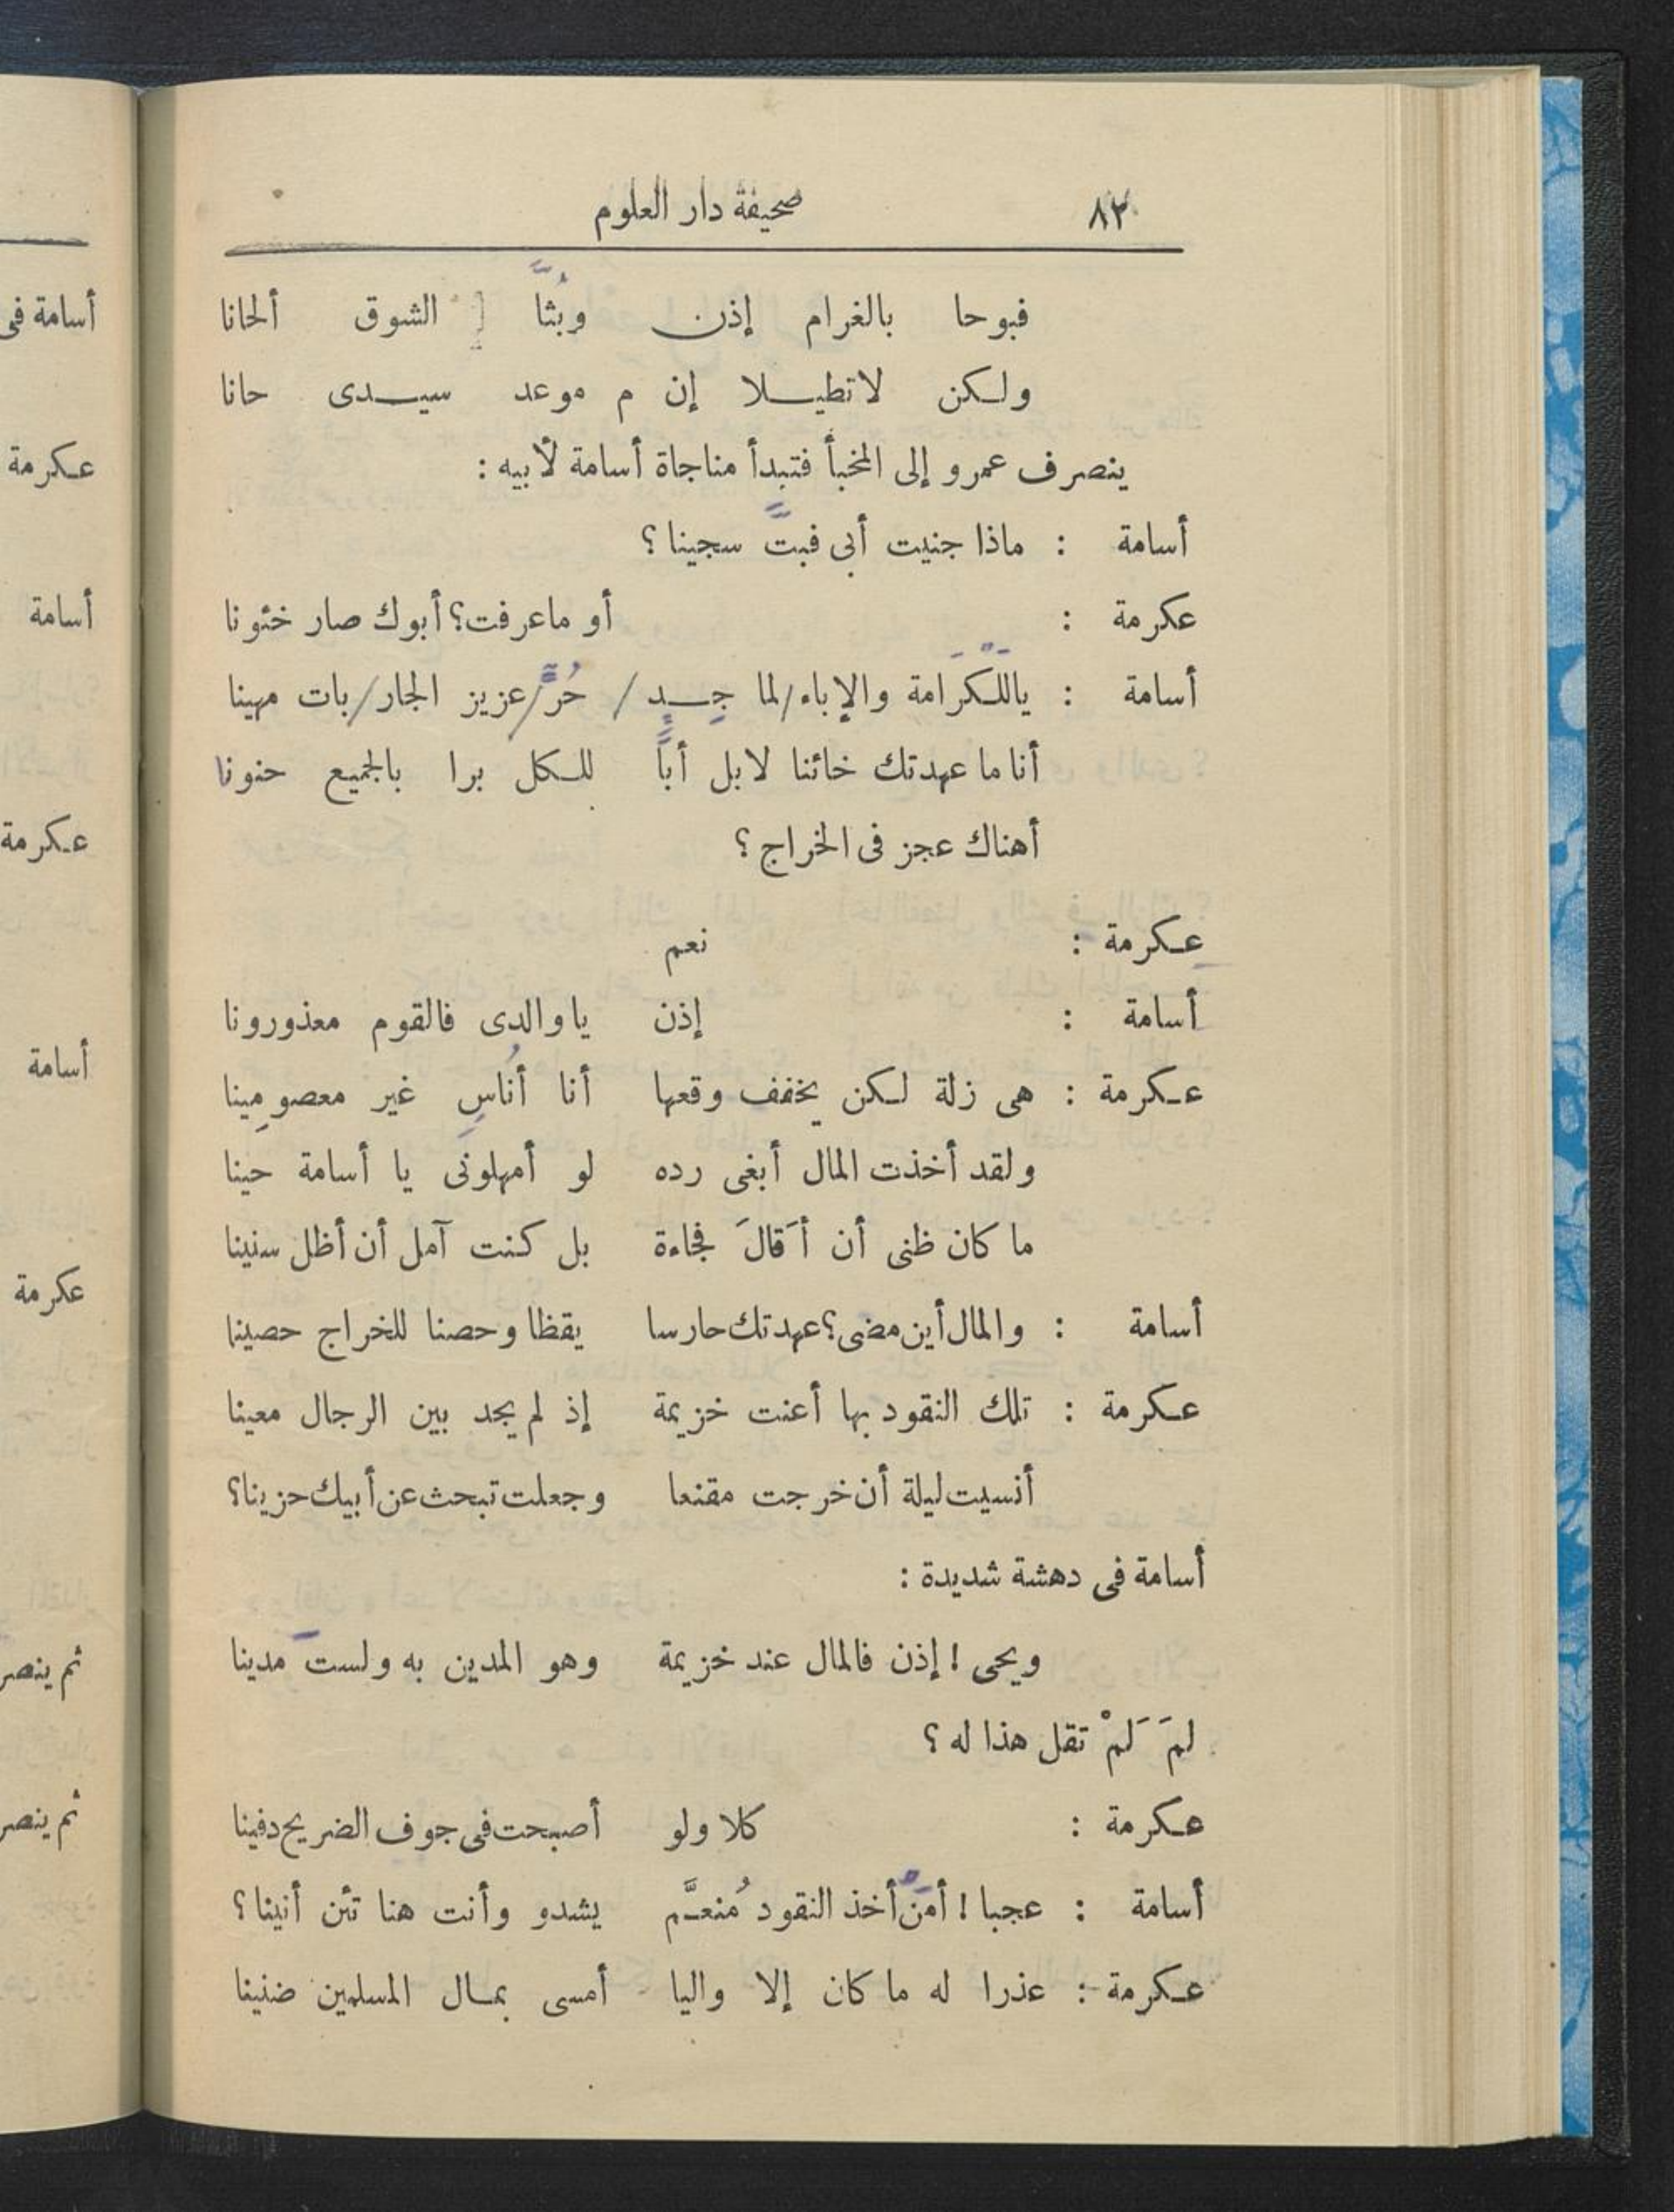 ٨٢ صحيفة دار العلوم
فبوحا بالغرام إذن وبُثَّا الشوق ألحانا
ولكن لاتطيلا إن م موعد سيدى حانا
ينصرف عمرو إلى المخبأ فتبدأ مناجاة أسامة لأبيه :
أسامة : ماذا جنيت أبى فبتَّ سجينا ؟
عكرمة : أو ماعرفت؟ أبوك صار خئونا
أسامة : ياللَكرَامة والإباء/لما جِد / حُرٍّ/عزيز الجار/بات مهينا
أنا ما عهدتك خائنا لا بل أباً للكل برا بالجميع حنونا
أهناك عجز فى الخراج ؟
عكرمة : نعم
أسامة : إذن ياوالدى فالقوم معذورونا
عكرمة : هى زلة لكن يخفف وقعها أنا أُناسٍ غير معصومِينا
ولقد أخذت المال أبغى رده لو أمهلونى يا أسامة حينا
ما كان ظنى أن أَقالَ فجاءة بل كنت آمل أن أظل سنينا
أسامة : والمال أين مضى؟ عهدتك حارسا يقظا وحصنا للخراج حصينا
عكرمة : تلك النقود بها أعنت خزيمة إذ لم يجد بين الرجال معينا
أنسيت ليلة أن خرجت مقنعا وجعلت تبحث عن أبيك حزينا؟
أسامة فى دهشة شديدة :
ويحى ! إذن فالمال عند خزيمة وهو المدين به ولستَ مدينا
لمَ لَمْ تقل هذا له ؟
عكرمة : كلا ولو أصبحت فى جوف الضريح دفينا
أسامة : عجبا ! أمَنْ أخذ النقود مُنعَّم يشدو وأنت هنا تئن أنينا ؟
عكرمة : عذرا له ما كان إلا واليا أمسى بمال المسلمين ضنينا
أسامة فى
عكرمة
أسامة
عكرمة
أسامة
عكرمة
ثم ينصر
ثم ينصر